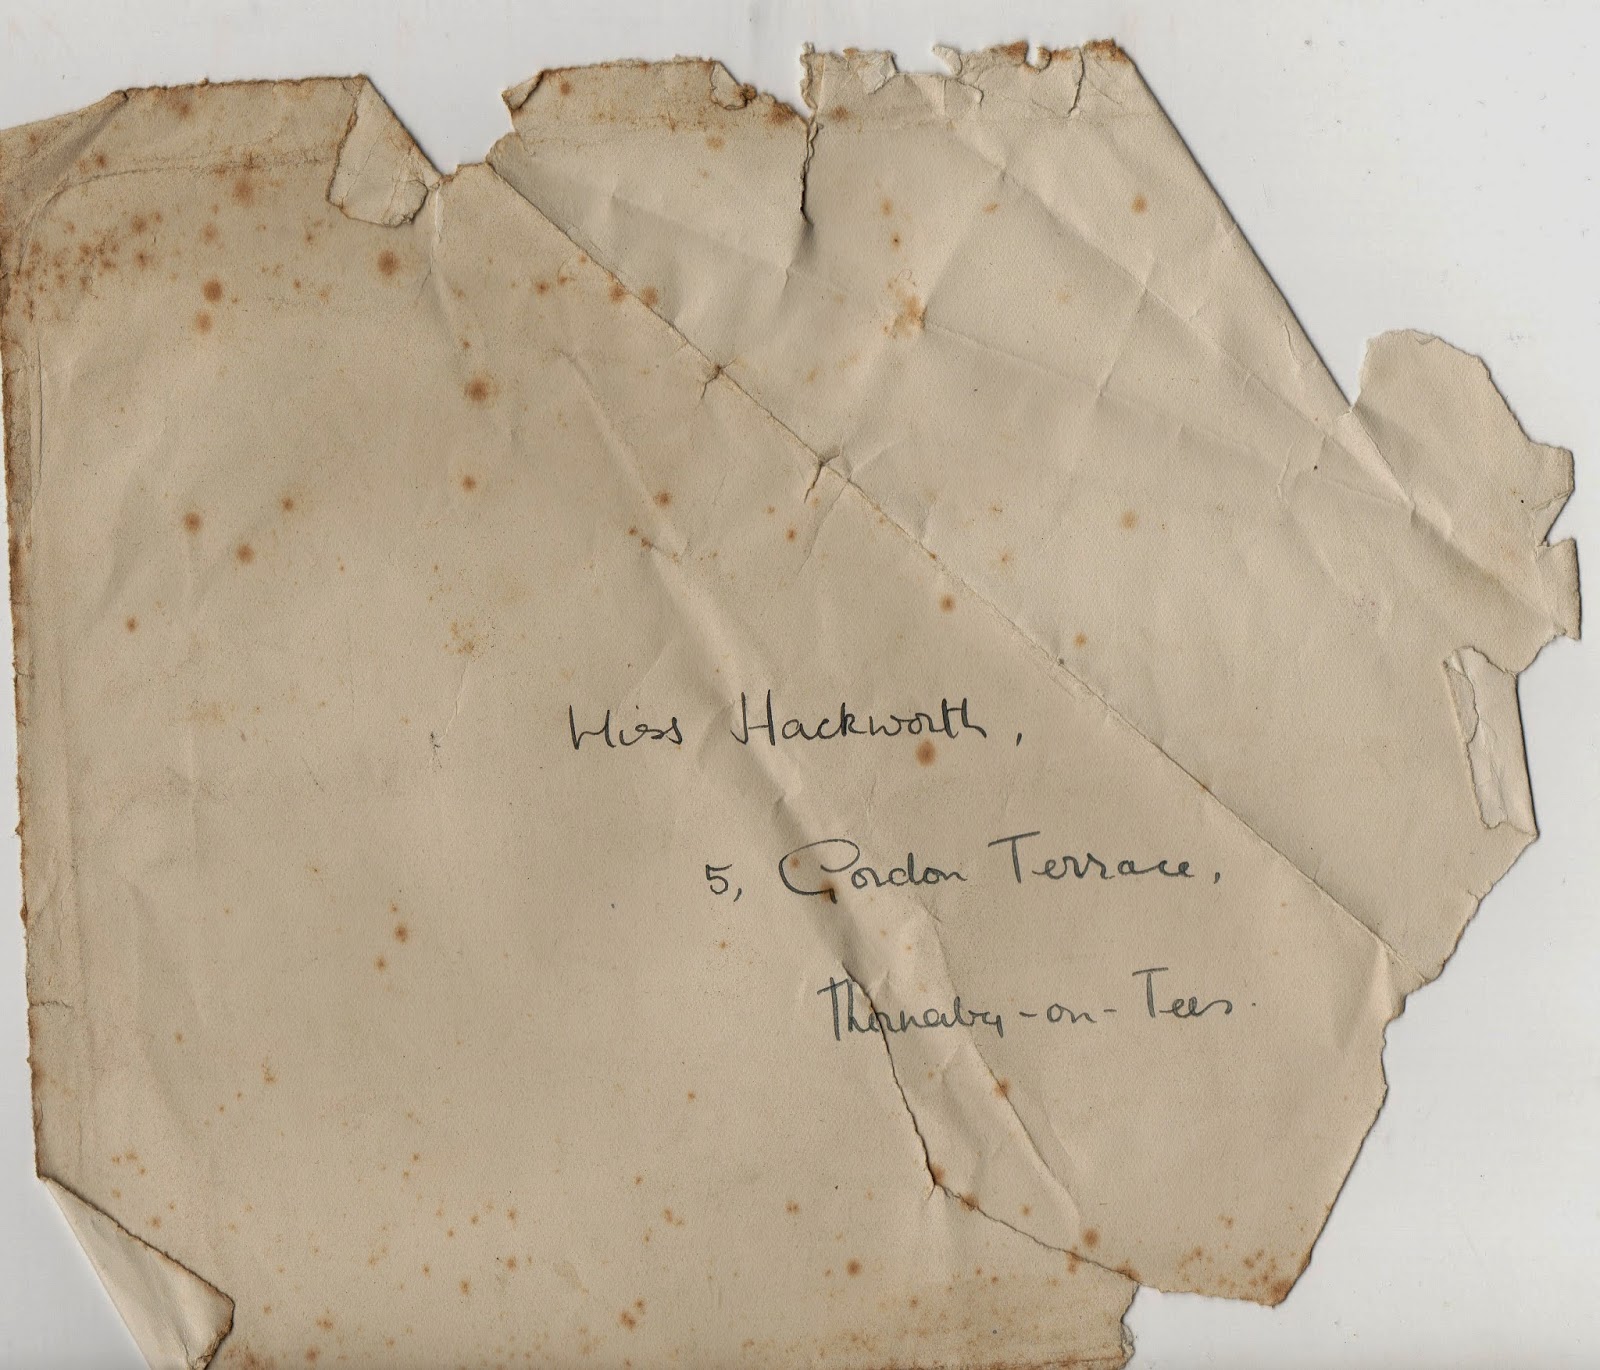 Miss Hackworth,
5, Gordon Terrace,
Thornaby-on-Tees.